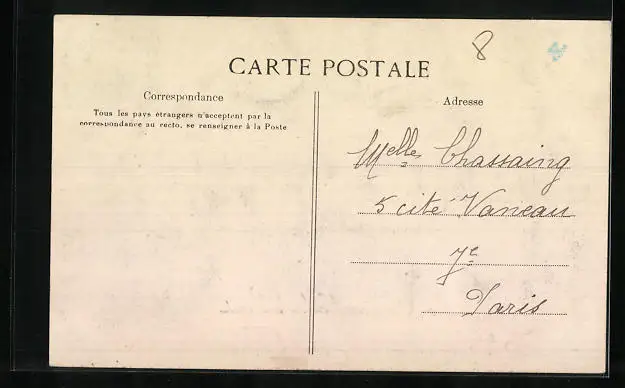 8
CARTE POSTALE
Correspondance
Tous les pays étrangers n'acceptent pas la
correspondance au recto, se renseigner à la Poste
Adresse
Melles Chassaing
5 cité Vaneau
7e
Paris